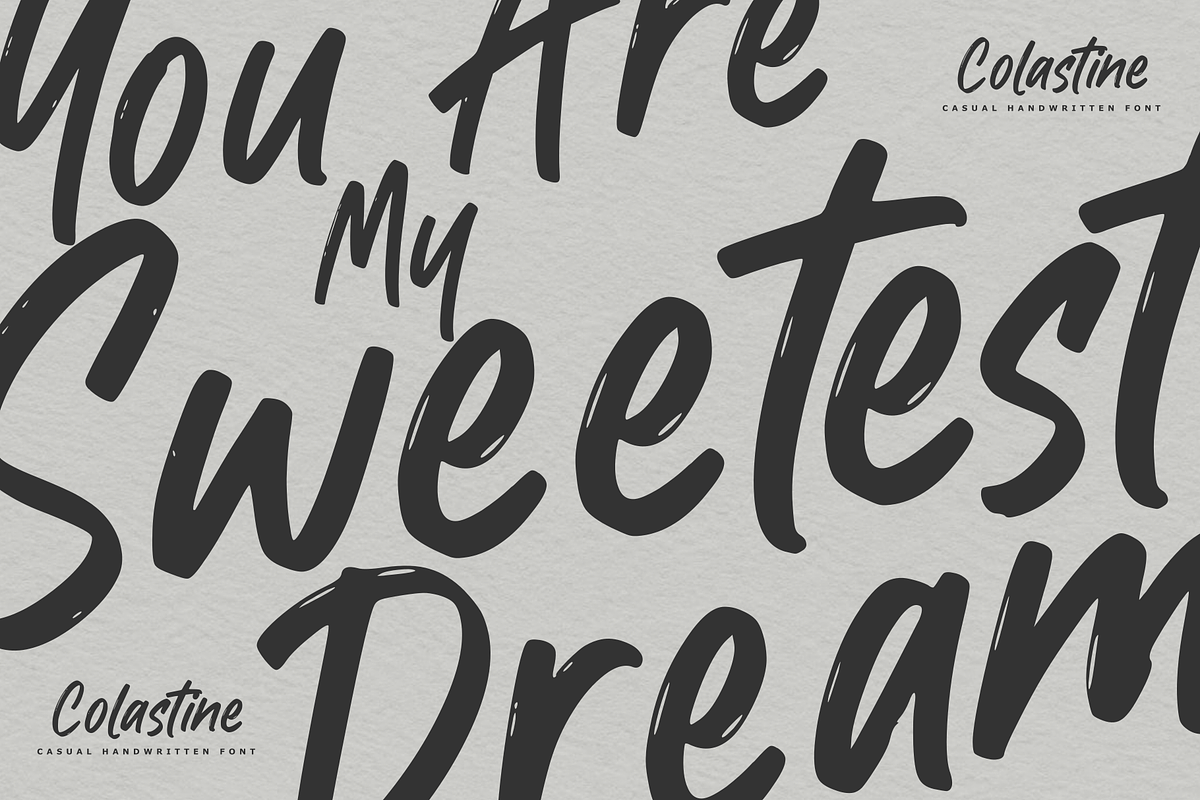 You Are
Colastine
CASUAL HANDWRITTEN FONT
My
Sweetest
Dream
Colastine
CASUAL HANDWRITTEN FONT